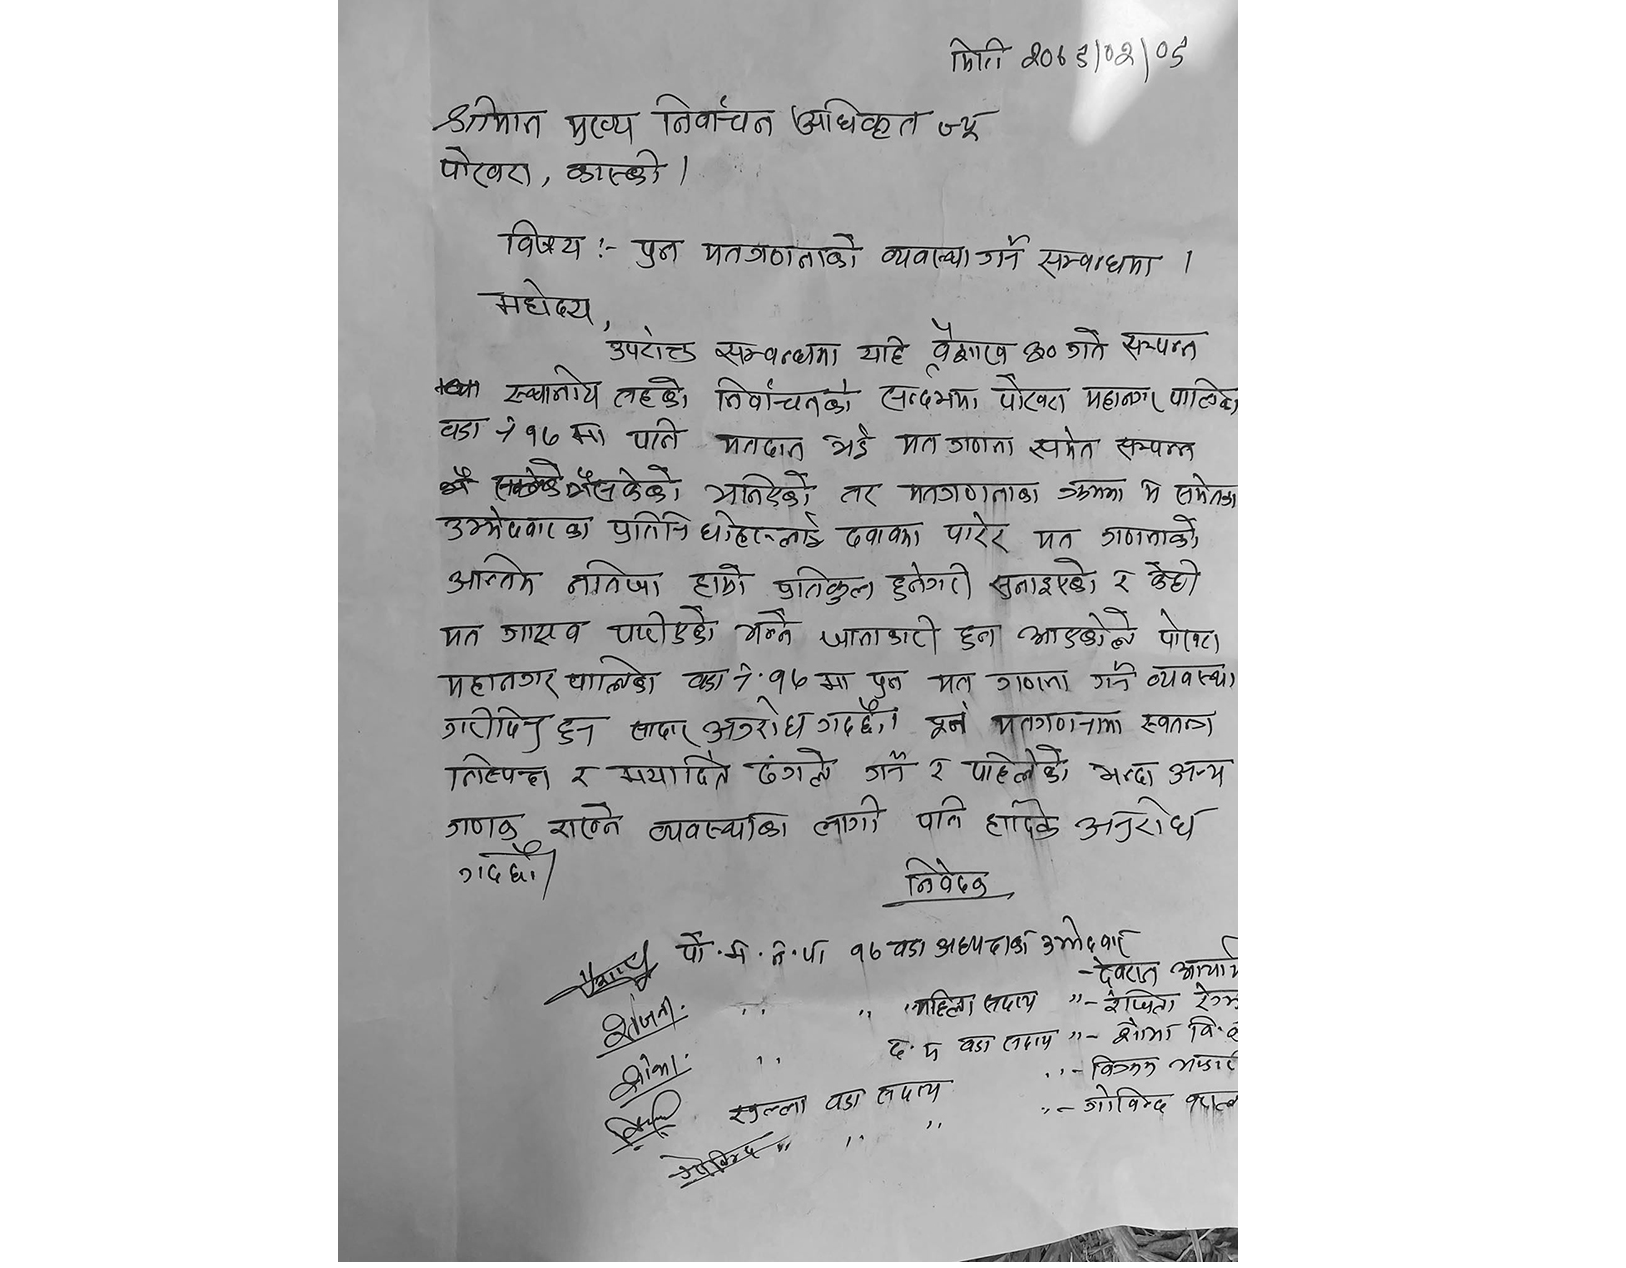 मिति २०७९/०२/०९
श्रीमान मुख्य निर्वाचन अधिकृत ज्यू
पोखरा, कास्की ।
विषय :- पुन मतगणनाको व्यवस्था गर्ने सम्बन्धमा ।
महोदय,
उपरोक्त सम्बन्धमा यहि वैशाख ३० गते सम्पन्न
स्थानीय तहको निर्वाचनको सन्दर्भमा पोखरा महानगरपालिका
वडा नं १७ मा पनि मतदान भई मत गणना समेत सम्पन्न
भैसकेको भनिएको तर मतगणनाका क्रममा म समेतका
उम्मेदवारका प्रतिनिधीहरुलाई दवावमा पारेर मत गणनाको
अन्तिम नतिजा हाम्रो प्रतिकुल हुनेगरी सुनाइएको र केही
मत गायव पारीएको भन्ने जानाकारी हुन आएकोले पोखरा
महानगर पालिका वडा नं. १७ मा पुन मत गणना गर्ने व्यवस्था
गरीदिनु हुन सादर अनुरोध गर्दछौं। पुन मतगणनामा स्वतन्त्र
निस्पक्ष र मर्यादित ढंगले गर्ने र पहिलेको भन्दा अन्य
गणक राख्ने व्यवस्थाका लागी पनि हार्दिक अनुरोध
गर्दछौं।
निवेदक
पो.म.न.पा १७ वडा अध्यक्षका उम्मेदवार
- देवराज आचार्य
रंजिता
" " महिला सदस्य "-
शोभा
" द.म वडा सदस्य "- शोभा वि.क
"-विक्रम
खुल्ला वडा सदस्य "- गोविन्द
गोविन्द " " "